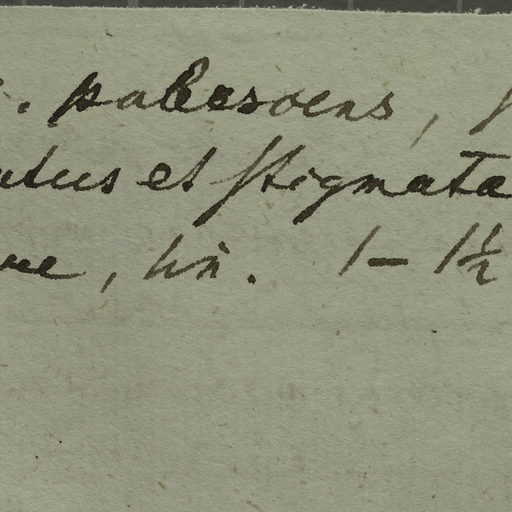 . pubescens,
et stigmata
, lin. 1 - 1½